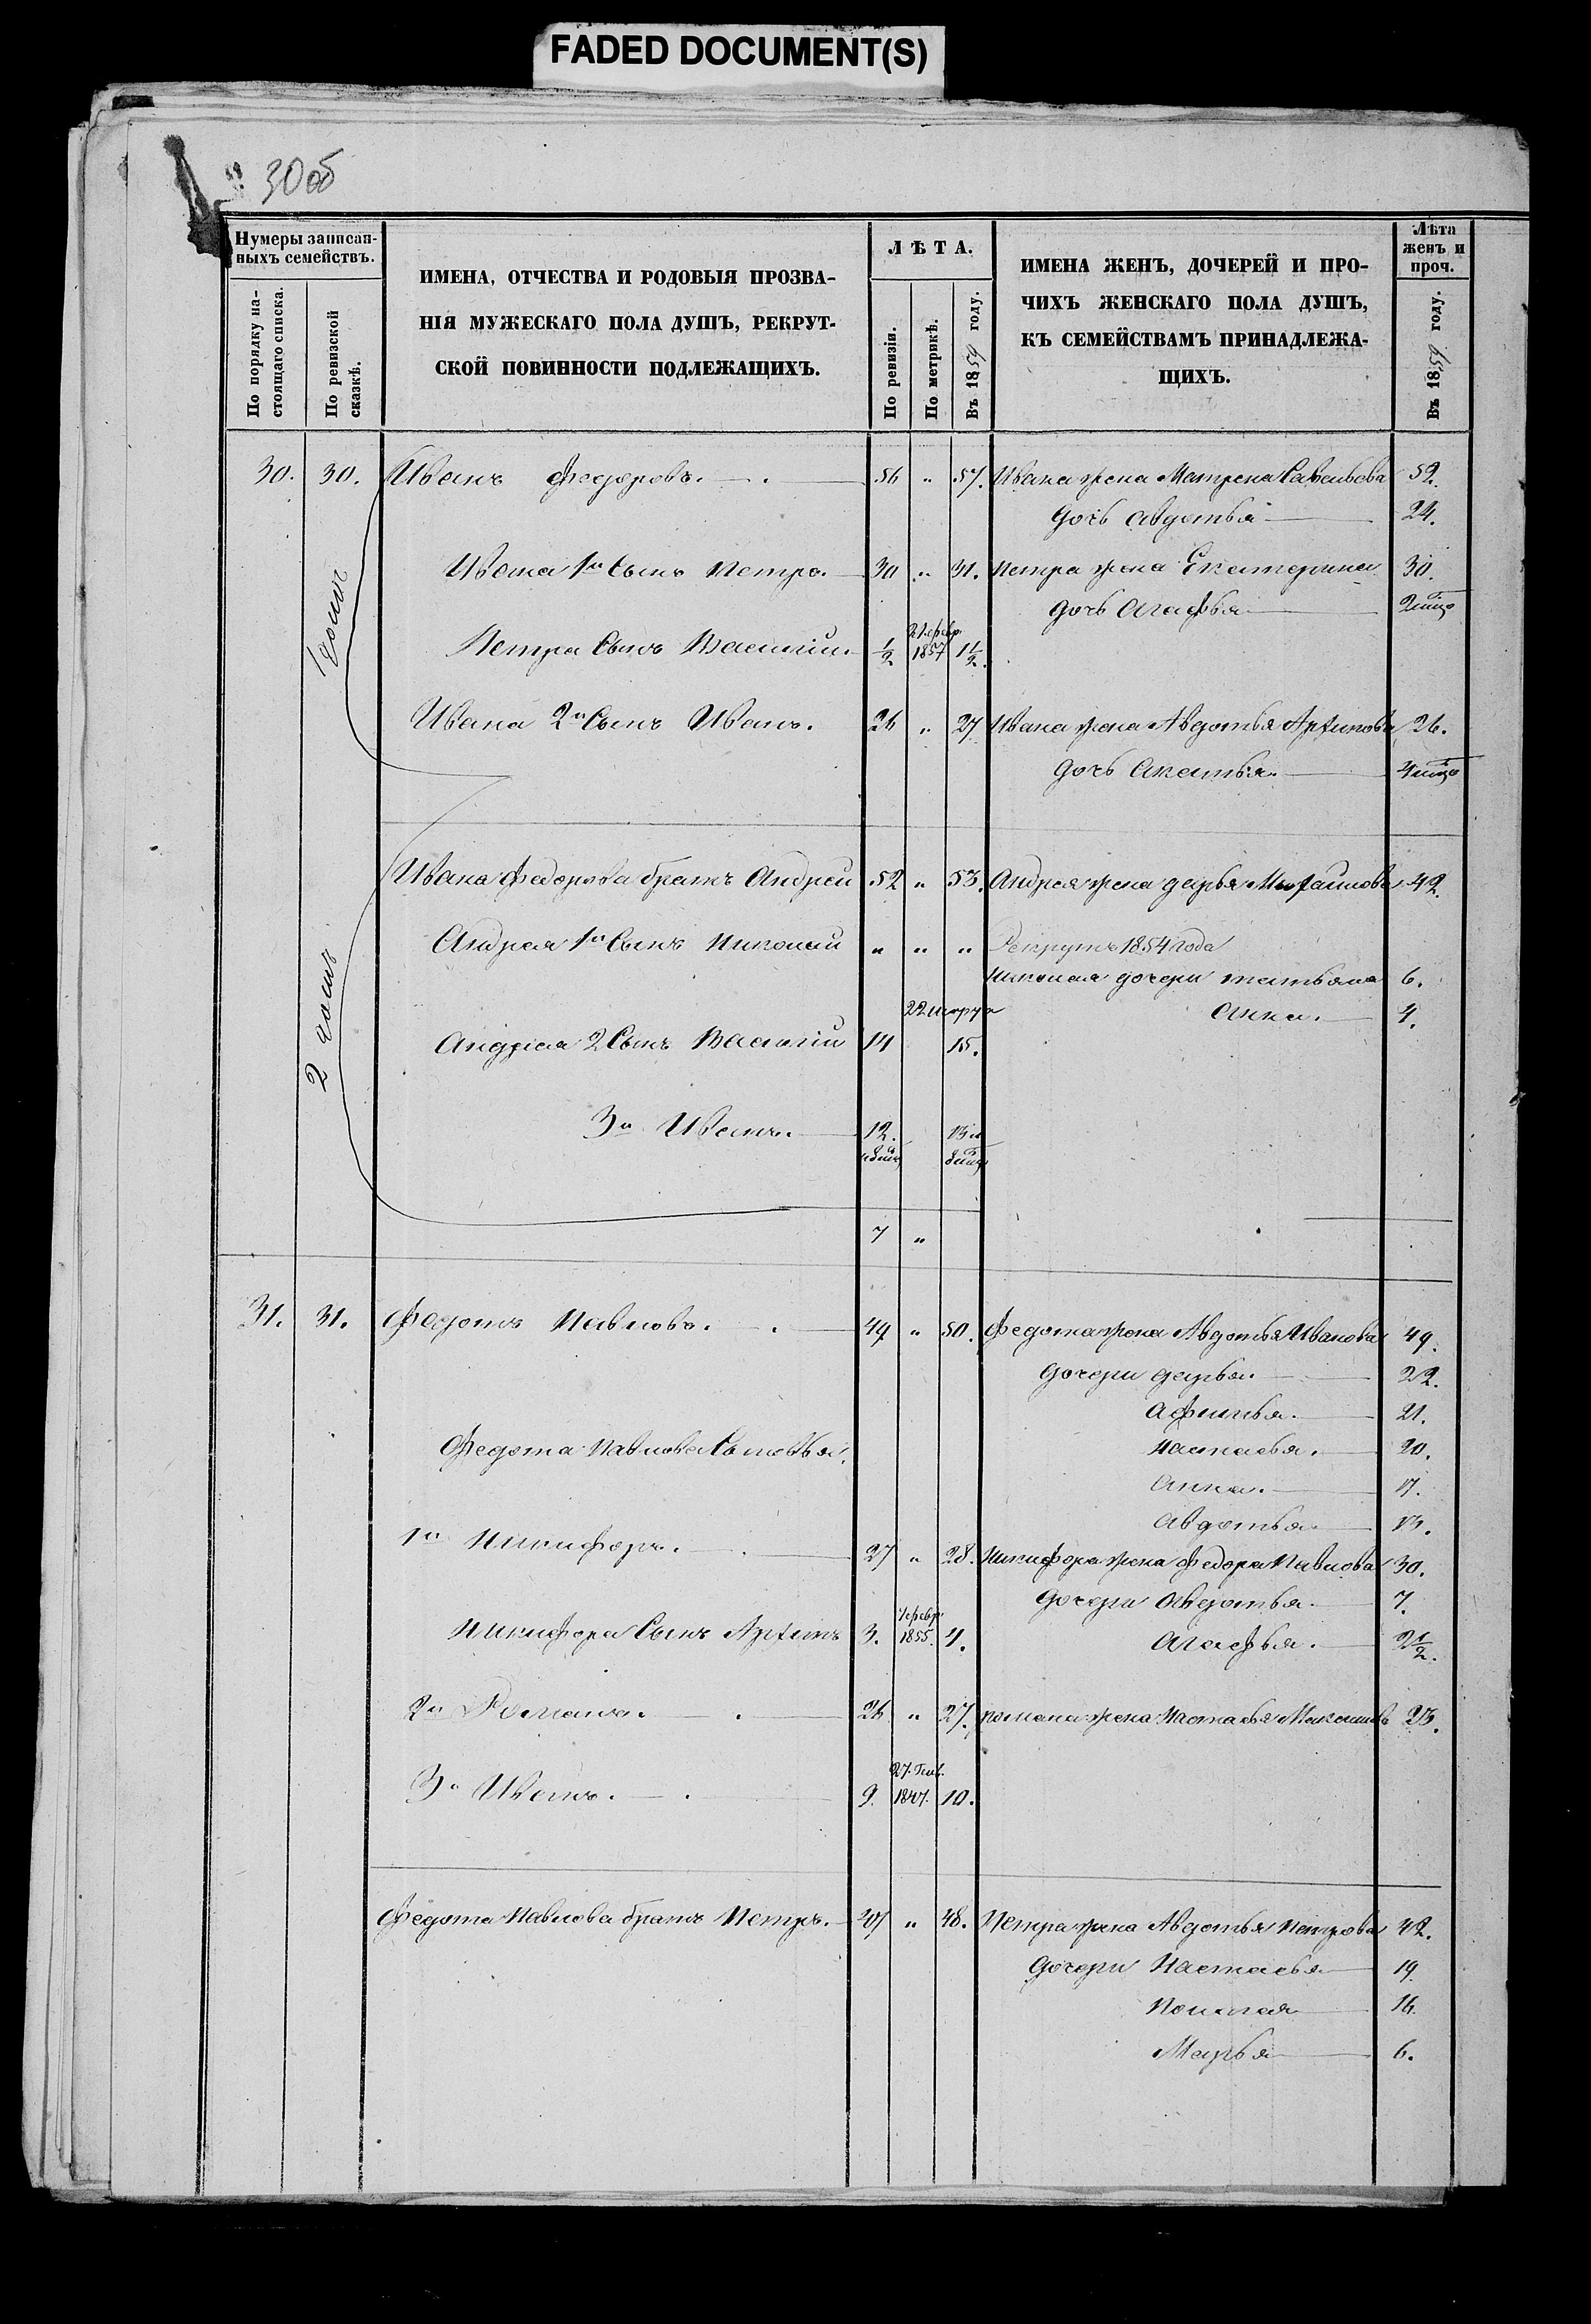 FADED DOCUMENT(S)
30 об
Нумеры записан-
ныхъ семействъ.
По порядку на-
стоящаго списка.
По ревизской
сказкѣ.
ИМЕНА, ОТЧЕСТВА И РОДОВЫЯ ПРОЗВА-
НІЯ МУЖЕСКАГО ПОЛА ДУШЪ, РЕКРУТ-
СКОЙ ПОВИННОСТИ ПОДЛЕЖАЩИХЪ.
ЛѢТА.
По ревизіи.
По метрикѣ.
Въ 1859 году.
ИМЕНА ЖЕНЪ, ДОЧЕРЕЙ И ПРО-
ЧИХЪ ЖЕНСКАГО ПОЛА ДУШЪ,
КЪ СЕМЕЙСТВАМЪ ПРИНАДЛЕЖА-
ЩИХЪ.
Лѣта
женъ и
проч.
Въ 1859 году.
30. 30. Иванъ Федоровъ. 56 " 57. Ивана жена Матрена Савельева 52.
дочь Авдотья 24.
Ивана 1й Сынъ Петръ. 30 " 31. Петра жена Екатерина 30.
дочь Агафья
Петра Сынъ Василій. 1/2 21 февр. 1857 1 1/2.
Ивана 2й Сынъ Иванъ. 26 " 27 Ивана жена Авдотья Архипова 26.
дочь
Ивана Федорова братъ Андрей 52 " 53. Андрея жена дарья Михайлова 42.
Андрея 1й Сынъ Николай " " " Рекрутъ 1854 года
Николая дочери татьяна 6.
Анна. 4.
22 марта
Андрея 2 Сынъ Василій 14 15.
3й Иванъ. 12. 13 и
7 "
31. 31. Федотъ Павловъ. 49 " 50. Федота жена Авдотья Иванова 49.
дочери дарья. 22.
Афимья. 21.
Федота Павлова Сыновья. Настасья. 20.
Анна. 17.
Авдотья 13.
1й Никифоръ. 27 " 28. Никифора жена Федора Павлова 30.
дочери Авдотья. 7.
Никифора Сынъ Архипъ 3. февр. 1855. 4. Агафья. 2 1/2.
2й Романъ. 26 " 27. романа жена Настасья Максимов 23.
3й Иванъ. 9. 27. Генв. 1847. 10.
Федота Павлова братъ Петръ. 47 " 48. Петра жена Авдотья Петрова 42.
дочери Настасья 19.
Пелагея 16.
Марья 6.